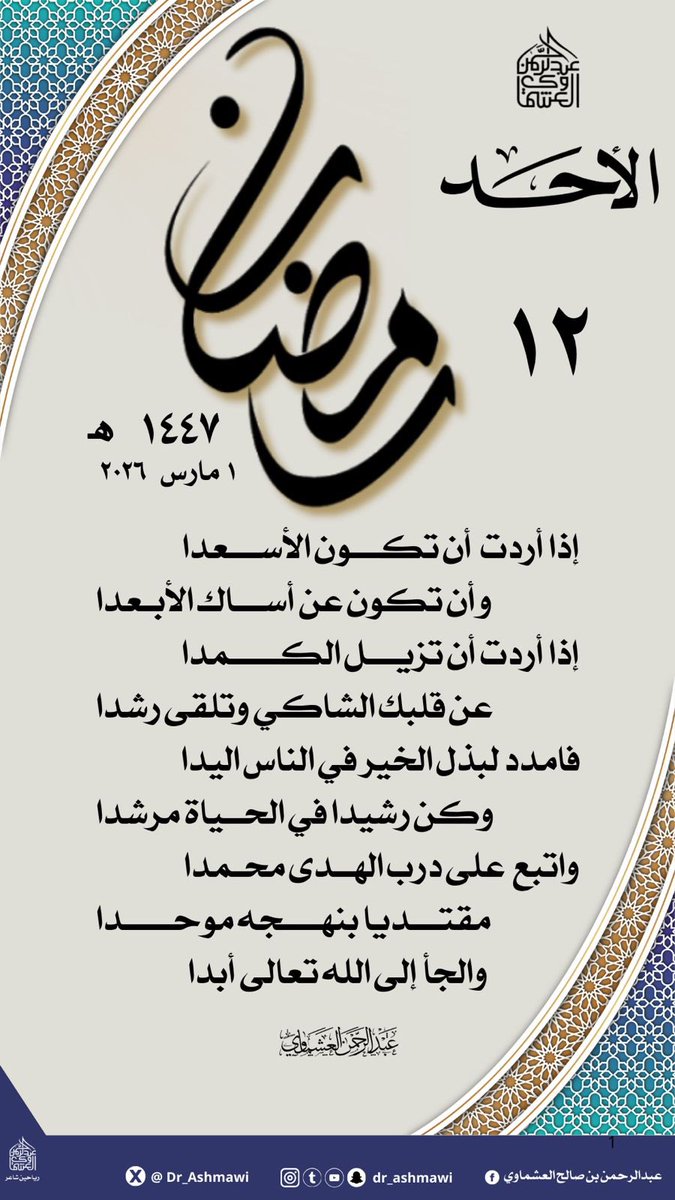 عبدالرحمن
العشماوي
الأحد
١٢
رمضان
١٤٤٧ هـ
١ مارس ٢٠٢٦
إذا أردت أن تكون الأسعدا
وأن تكون عن أساك الأبعدا
إذا أردت أن تزيل الكمدا
عن قلبك الشاكي وتلقى رشدا
فامدد لبذل الخير في الناس اليدا
وكن رشيدا في الحياة مرشدا
واتبع على درب الهدى محمدا
مقتديا بنهجه موحدا
والجأ إلى الله تعالى أبدا
عبدالرحمن العشماوي
1
رياحين شاعر
@ Dr_Ashmawi
dr_ashmawi
عبدالرحمن بن صالح العشماوي